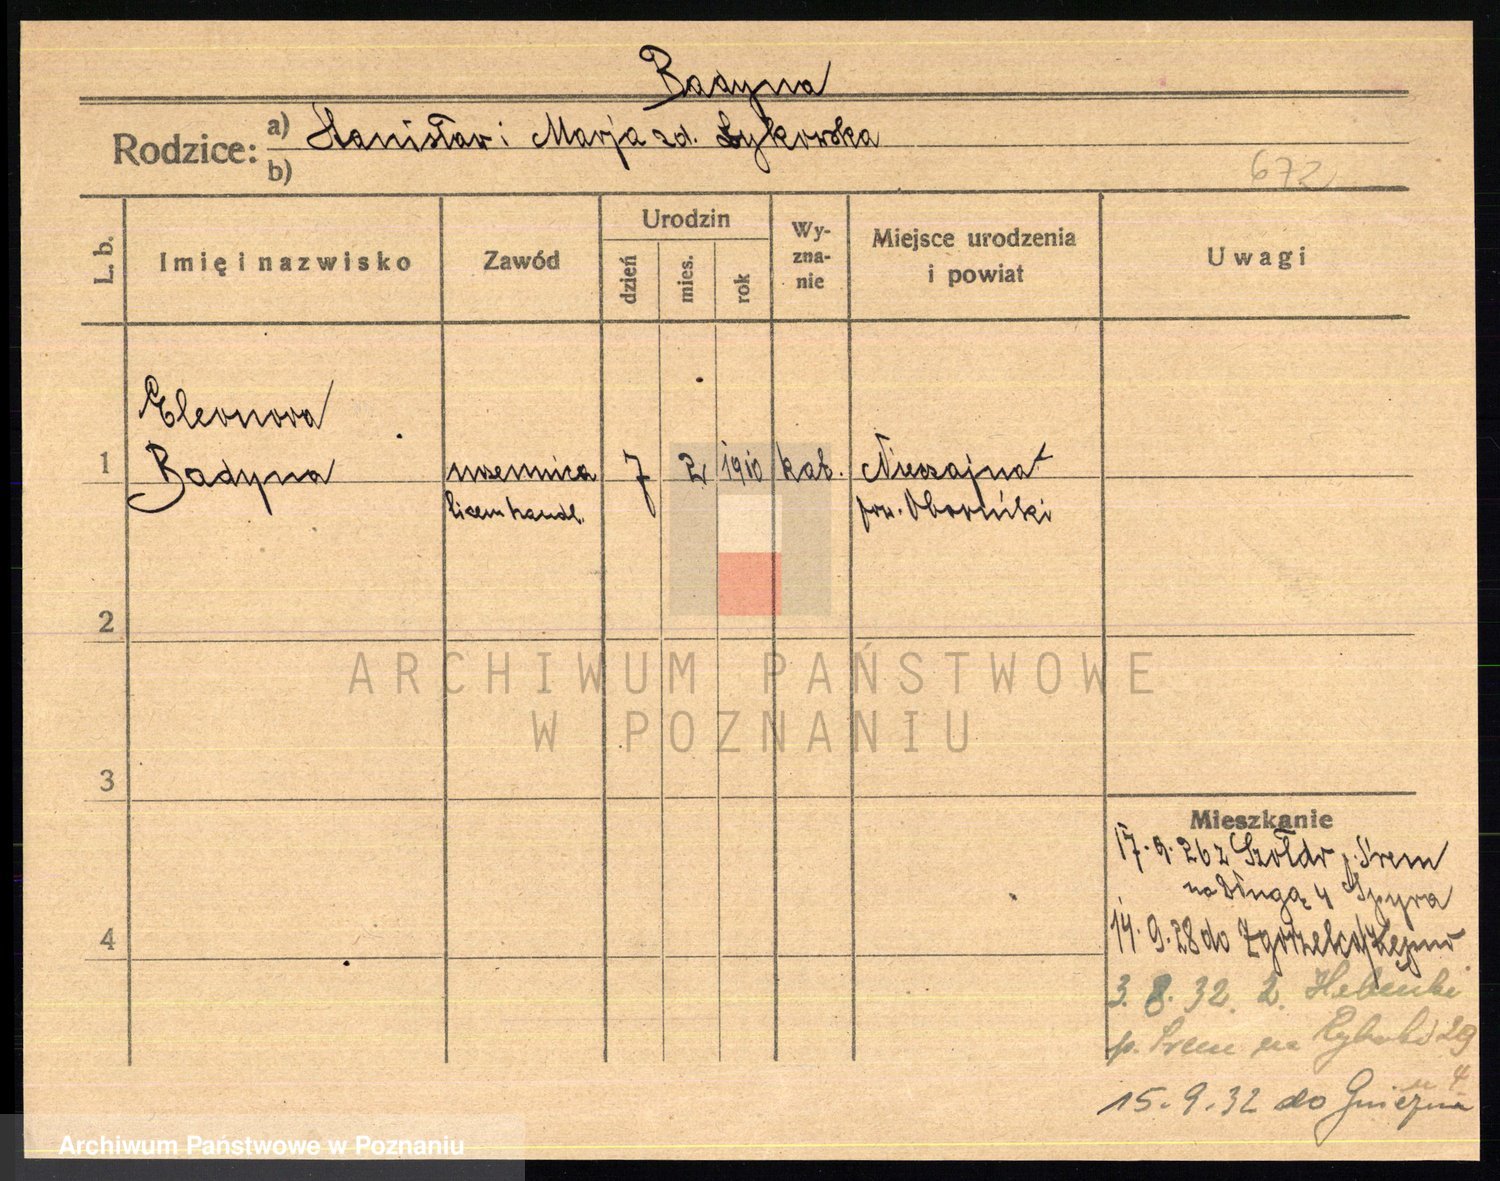 Badyna
Rodzice: a) Stanisław i Marja zd. Łykowska
b)
672
L. b.
Imię i nazwisko
Zawód
Urodzin
dzień
mies.
rok
Wy-
zna-
nie
Miejsce urodzenia
i powiat
Uwagi
Eleonora
1 Badyna uczennica 7 2 1910 kat. Nieczajna
liceum handl. pow. Oborniki
2
ARCHIWUM PAŃSTWOWE
W POZNANIU
3
Mieszkanie
17.9.26 z Szołdr p. Śrem
na Długą 4 Szyra
4
14.9.28 do
3.8.32. z.
p. Śrem na 29
15.9.32 do Gniezna
Archiwum Państwowe w Poznaniu